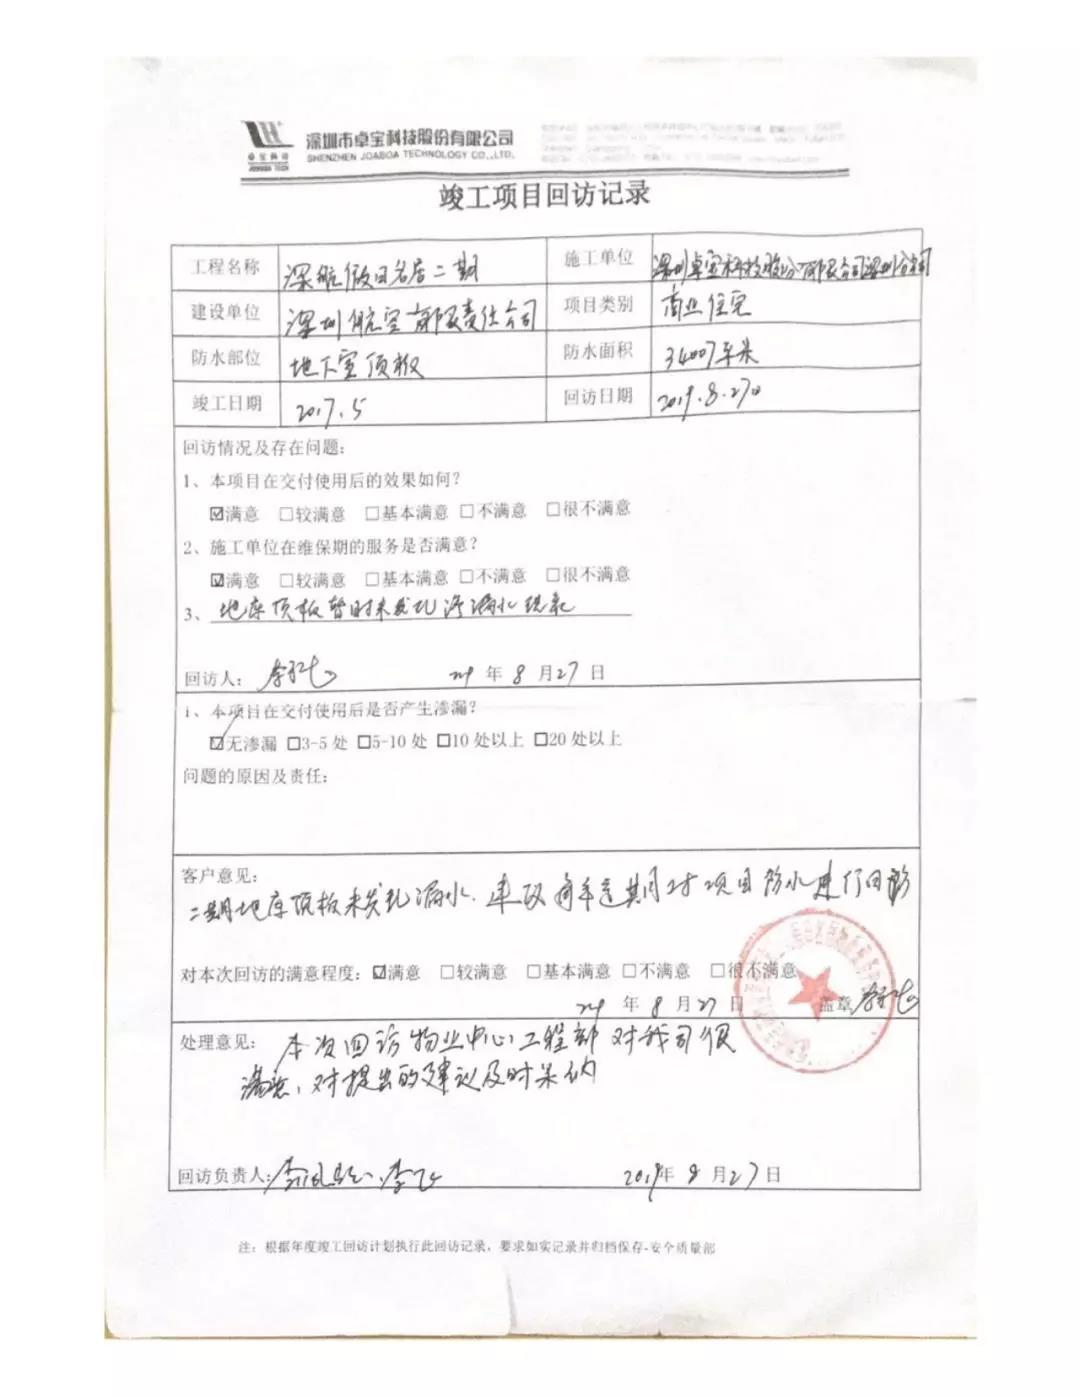 卓宝科技
JOABOA TECH
深圳市卓宝科技股份有限公司
SHENZHEN JOABOA TECHNOLOGY CO.,LTD.
竣工项目回访记录
工程名称 深航假日名居二期 施工单位 深圳卓宝科技股份有限公司深圳分公司
建设单位 深圳航空有限责任公司 项目类别 商业住宅
防水部位 地下室顶板 防水面积 34007平米
竣工日期 2017.5 回访日期 2019.8.27日
回访情况及存在问题:
1、本项目在交付使用后的效果如何?
☑满意 □较满意 □基本满意 □不满意 □很不满意
2、施工单位在维保期的服务是否满意?
☑满意 □较满意 □基本满意 □不满意 □很不满意
3、地库顶板暂时未发现渗漏水现象
回访人: 年 8 月 27 日
1、本项目在交付使用后是否产生渗漏?
☑无渗漏 □3-5 处 □5-10 处 □10 处以上 □20 处以上
问题的原因及责任:
客户意见:
二期地库顶板未发现漏水.建议每年定期对项目防水进行回访
对本次回访的满意程度: ☑满意 □较满意 □基本满意 □不满意 □很不满意
年 8 月 27 日 盖章
处理意见: 本次回访物业中心工程部对我司很
满意,对提出的建议及时采纳
回访负责人: 2019年 8 月 27 日
注: 根据年度竣工回访计划执行此回访记录，要求如实记录并归档保存-安全质量部